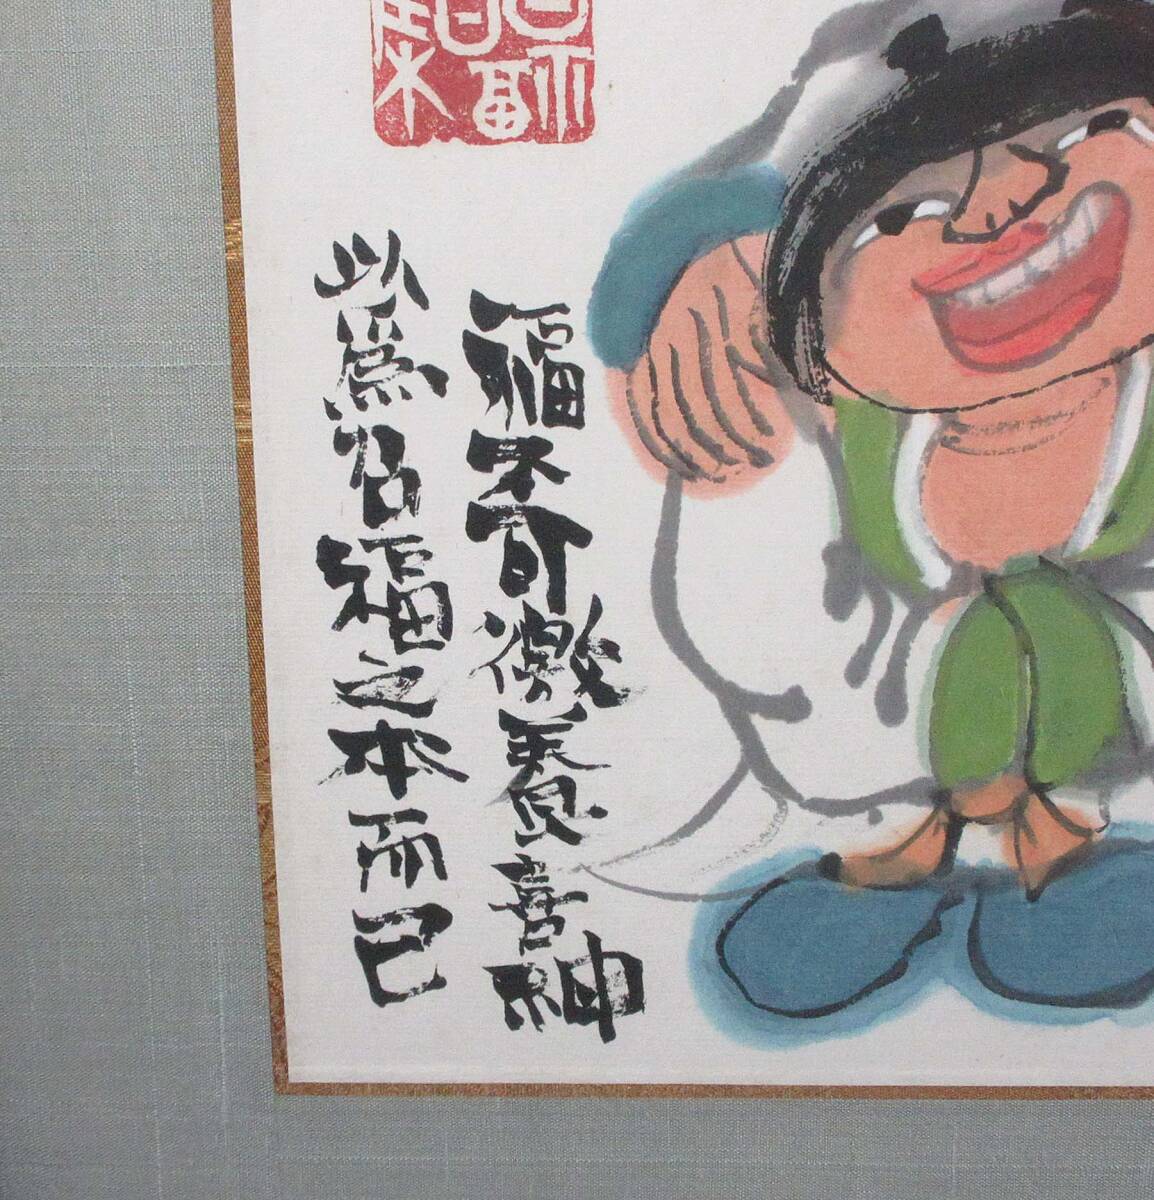 福不可徼養喜神
以為召福之本而已